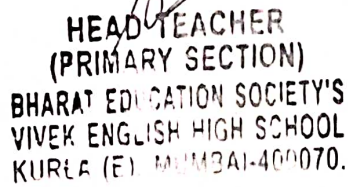 HEAD TEACHER
(PRIMARY SECTION)
BHARAT EDUCATION SOCIETY'S
VIVEK ENGLISH HIGH SCHOOL
KURLA (E). MUMBAI-400070.